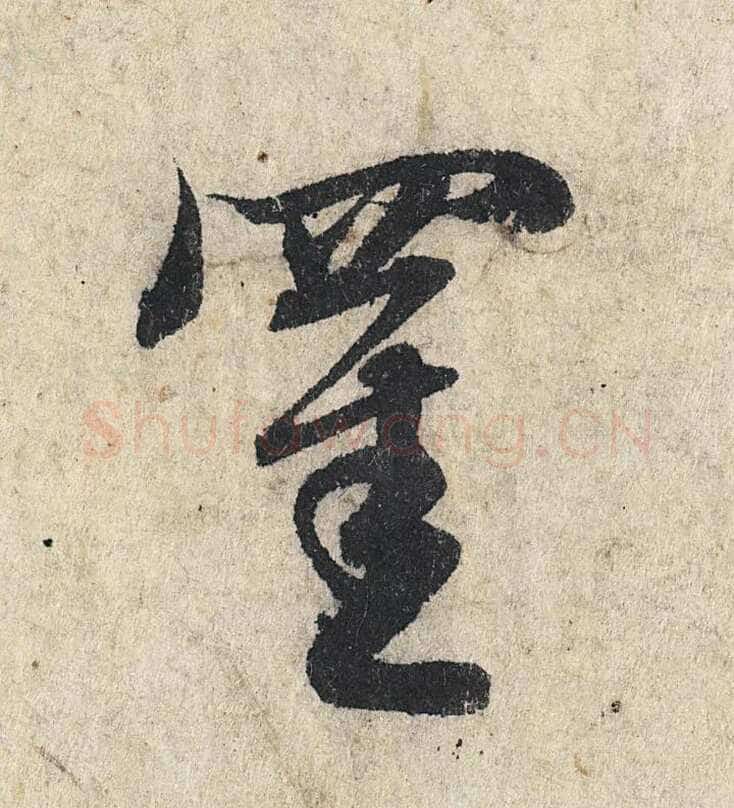 罣
Shufawang.CN